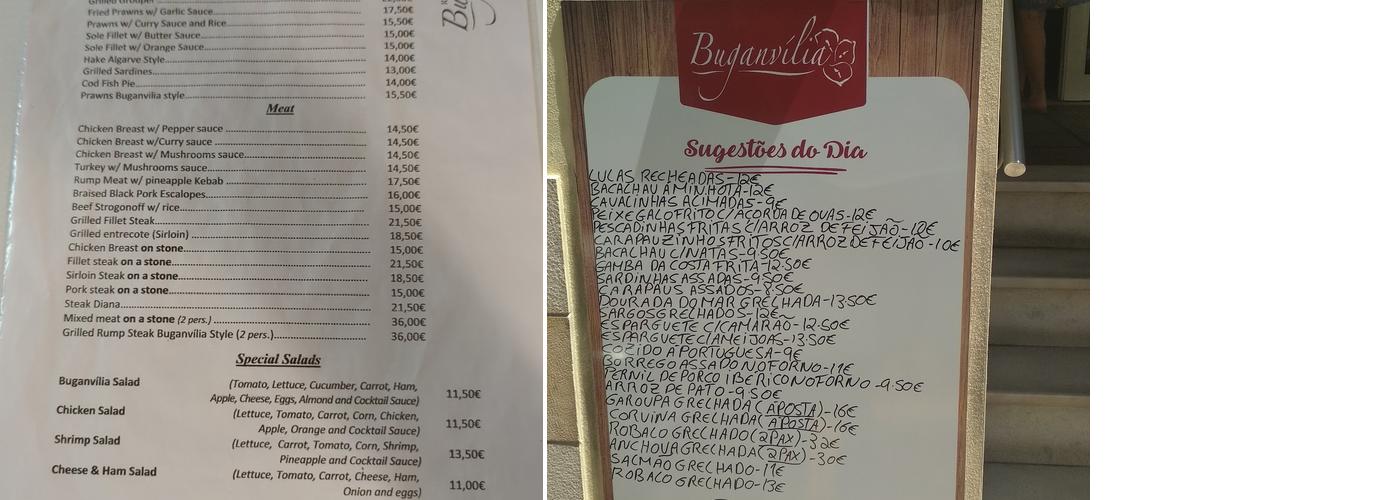 Grilled Grouper
Fried Prawns w/ Garlic Sauce 17,50€
Prawns w/ Curry Sauce and Rice 15,50€
Sole Fillet w/ Butter Sauce 15,00€
Sole Fillet w/ Orange Sauce 15,00€
Hake Algarve Style 14,00€
Grilled Sardines 13,00€
Cod Fish Pie 14,00€
Prawns Buganvilia style 15,50€
Meat
Chicken Breast w/ Pepper sauce 14,50€
Chicken Breast w/Curry sauce 14,50€
Chicken Breast w/ Mushrooms sauce 14,50€
Turkey w/ Mushrooms sauce 14,50€
Rump Meat w/ pineapple Kebab 17,50€
Braised Black Pork Escalopes 16,00€
Beef Strogonoff w/ rice 15,00€
Grilled Fillet Steak 21,50€
Grilled entrecote (Sirloin) 18,50€
Chicken Breast on stone 15,00€
Fillet steak on a stone 21,50€
Sirloin Steak on a stone 18,50€
Pork steak on a stone 15,00€
Steak Diana 21,50€
Mixed meat on a stone (2 pers.) 36,00€
Grilled Rump Steak Buganvília Style (2 pers.) 36,00€
Special Salads
Buganvília Salad (Tomato, Lettuce, Cucumber, Carrot, Ham,
Apple, Cheese, Eggs, Almond and Cocktail Sauce) 11,50€
Chicken Salad (Lettuce, Tomato, Carrot, Corn, Chicken,
Apple, Orange and Cocktail Sauce) 11,50€
Shrimp Salad (Lettuce, Carrot, Tomato, Corn, Shrimp,
Pineapple and Cocktail Sauce) 13,50€
Cheese & Ham Salad (Lettuce, Tomato, Carrot, Cheese, Ham,
Onion and eggs) 11,00€
Buganvília
Sugestões do Dia
LULAS RECHEADAS-12€
BACALHAU À MINHOTA-12€
CAVALINHAS ALIMADAS-9€
PEIXE GALO FRITO C/AÇORDA DE OVAS-12€
PESCADINHAS FRITAS C/ARROZ DE FEIJÃO-12€
CARAPAUZINHOS FRITOS C/ARROZ DE FEIJÃO-10€
BACALHAU C/NATAS-9.50€
GAMBA DA COSTA FRITA-12.50€
SARDINHAS ASSADAS-9.50€
CARAPAUS ASSADOS-8.50€
DOURADA DO MAR GRELHADA-13.50€
SARGOS GRELHADOS-12€
ESPARGUETE C/CAMARÃO-12.50€
ESPARGUETE C/AMEIJOAS-13.50€
COZIDO À PORTUGUESA-9€
BORREGO ASSADO NO FORNO-11€
PERNIL DE PORCO IBERICO NO FORNO-9.50€
ARROZ DE PATO-9.50€
GAROUPA GRELHADA (APOSTA)-16€
CORVINA GRELHADA (APOSTA)-16€
ROBALO GRELHADO (2PAX)-32€
ANCHOVA GRELHADA (2PAX)-30€
SALMÃO GRELHADO-11€
ROBALO GRELHADO-13€